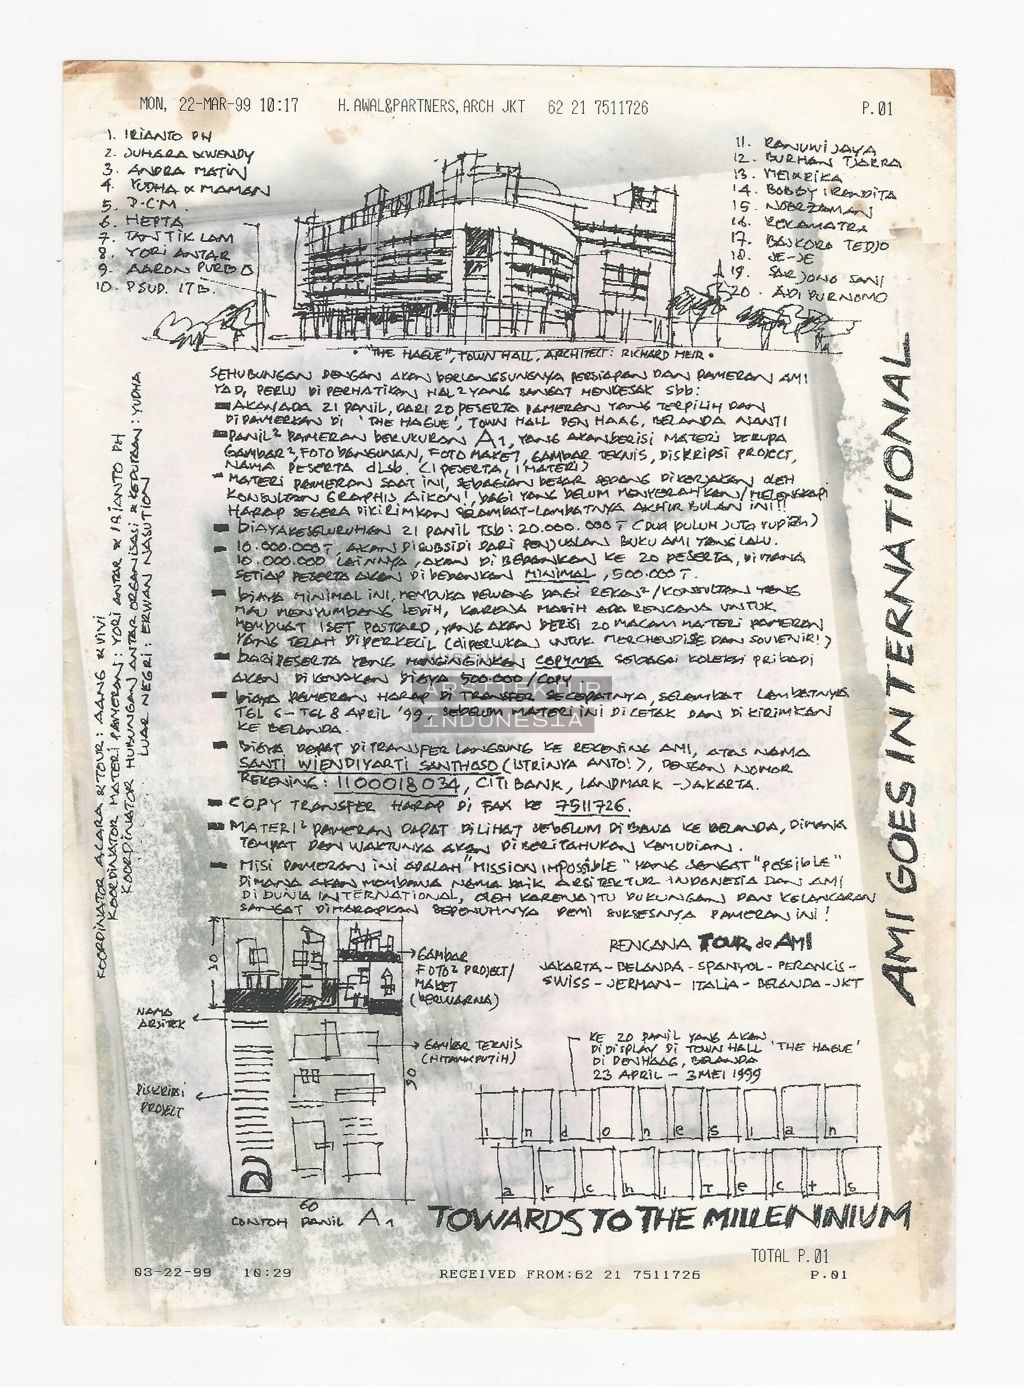 MON, 22-MAR-99 10:17 H.AWAL&PARTNERS,ARCH JKT 62 21 7511726 P.01
1. IRIANTO PH
2. JUHARA & WENDY
3. ANDRA MATIN
4. YUDHA & MAMAN
5. D.C.M.
6. HEPTA
7. TAN TIK LAM
8. YORI ANTAR
9. AARON PURBO
10. PSUD. ITB.
11. RANUWIJAYA
12. BURHAN TJAKRA
13. MEIKRIKA
14. BOBBY IRANDITA
15. NOERZAMAN
16. REKAMATRA
17. BASKORO TEDJO
18. JE-JE
19. SARJONO SANI
20. ADI PURNOMO
• "THE HAGUE", TOWN HALL, ARCHITECT: RICHARD MEIR •
SEHUBUNGAN DENGAN AKAN BERLANGSUNGNYA PERSIAPAN DAN PAMERAN AMI
YAD, PERLU DI PERHATIKAN HAL² YANG SANGAT MENDESAK SBB:
AKAN ADA 21 PANIL, DARI 20 PESERTA PAMERAN YANG TERPILIH DAN
DIPAMERKAN DI 'THE HAGUE', TOWN HALL DEN HAAG, BELANDA NANTI
PANIL² PAMERAN BERUKURAN A1, YANG AKAN BERISI MATERI BERUPA
GAMBAR², FOTO BANGUNAN, FOTO MAKET, GAMBAR TEKNIS, DISKRIPSI PROJECT,
NAMA PESERTA dLSb. (1 PESERTA, 1 MATERI)
MATERI PAMERAN SAAT INI, SEBAGIAN BESAR SEDANG DIKERJAKAN OLEH
KONSULTAN GRAPHIS AIKON!, BAGI YANG BELUM MENYERAHKAN/MELENGKAPI
HARAP SEGERA DIKIRIMKAN SELAMBAT-LAMBATNYA AKHIR BULAN INI!!!
BIAYA KESELURUHAN 21 PANIL TSB: 20.000.000 (DUA PULUH JUTA RUPIAH)
10.000.000, AKAN DISUBSIDI DARI PENJUALAN BUKU AMI YANG LALU.
10.000.000 LAINNYA, AKAN DI BEBANKAN KE 20 PESERTA, DIMANA
SETIAP PESERTA AKAN DI BEBANKAN MINIMAL, 500.000
BIAYA MINIMAL INI, MEMBUKA PELUANG BAGI REKAN²/KONSULTAN YANG
MAU MENYUMBANG LEBIH, KARENA MASIH ADA RENCANA UNTUK
MEMBUAT 1 SET POSTCARD, YANG AKAN BERISI 20 MACAM MATERI PAMERAN
YANG TELAH DIPERKECIL (DIPERLUKAN UNTUK MERCHENDISE DAN SOUVENIR!)
DARI PESERTA YANG MENGINGINKAN COPYNYA SEBAGAI KOLEKSI PRIBADI
AKAN DI KENAKAN BIAYA 500.000/COPY
BIAYA PAMERAN HARAP DI TRANSFER SECEPATNYA, SELAMBAT LAMBATNYA
TGL 6 - TGL 8 APRIL '99 SEBELUM MATERI INI DI CETAK DAN DI KIRIMKAN
KE BELANDA.
ARSITEKTUR
INDONESIA
BIAYA DAPAT DI TRANSFER LANGSUNG KE REKENING AMI, ATAS NAMA
SANTI WIENDIYARTI SANTHOSO (ISTRINYA ANTO!), DENGAN NOMOR
REKENING: 1100018034, CITIBANK, LANDMARK - JAKARTA.
COPY TRANSFER HARAP DI FAX KE 7511726.
MATERI² PAMERAN DAPAT DILIHAT SEBELUM DI BAWA KE BELANDA, DIMANA
TEMPAT DAN WAKTUNYA AKAN DI BERITAHUKAN KEMUDIAN.
MISI PAMERAN INI ADALAH "MISSION IMPOSSIBLE" YANG SANGAT "POSSIBLE"
DIMANA AKAN MEMBAWA NAMA BAIK ARSITEKTUR INDONESIA DAN AMI
DI DUNIA INTERNATIONAL, OLEH KARENA ITU DUKUNGAN DAN KELANCARAN
SANGAT DIHARAPKAN SEPENUHNYA DEMI SUKSESNYA PAMERAN INI!
KOORDINATOR ACARA & TOUR: AANG & VIVI
KOORDINATOR MATERI PAMERAN: YORI ANTAR & IRIANTO PH
KOORDINATOR HUBUNGAN ANTAR ORGANISASI & KEDUTAAN: YUDHA
LUAR NEGRI: ERWAN NASUTION
AMI GOES INTERNATIONAL
30
GAMBAR
FOTO² PROJECT/
MAKET
(BERWARNA)
NAMA
ARSITEK
GAMBAR TEKNIS
(HITAM & PUTIH)
90
DISKRIPSI
PROJECT
60
CONTOH PANIL A1
RENCANA TOUR de AMI
JAKARTA - BELANDA - SPANYOL - PERANCIS -
SWISS - JERMAN - ITALIA - BELANDA - JKT
KE 20 PANIL YANG AKAN
DI DISPLAY DI TOWN HALL 'THE HAGUE'
DI DENHAAG, BELANDA
23 APRIL - 3 MEI 1999
i n d o n e s i a n
a r c h i t e c t s
TOWARDS TO THE MILLENNIUM
TOTAL P.01
03-22-99 10:29 RECEIVED FROM:62 21 7511726 P.01